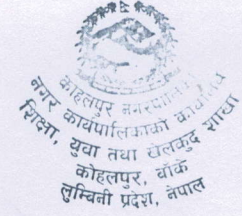 कोहलपुर नगरपालिका
नगर कार्यपालिकाको कार्यालय
शिक्षा, युवा तथा खेलकुद शाखा
कोहलपुर, बाँके
लुम्बिनी प्रदेश, नेपाल